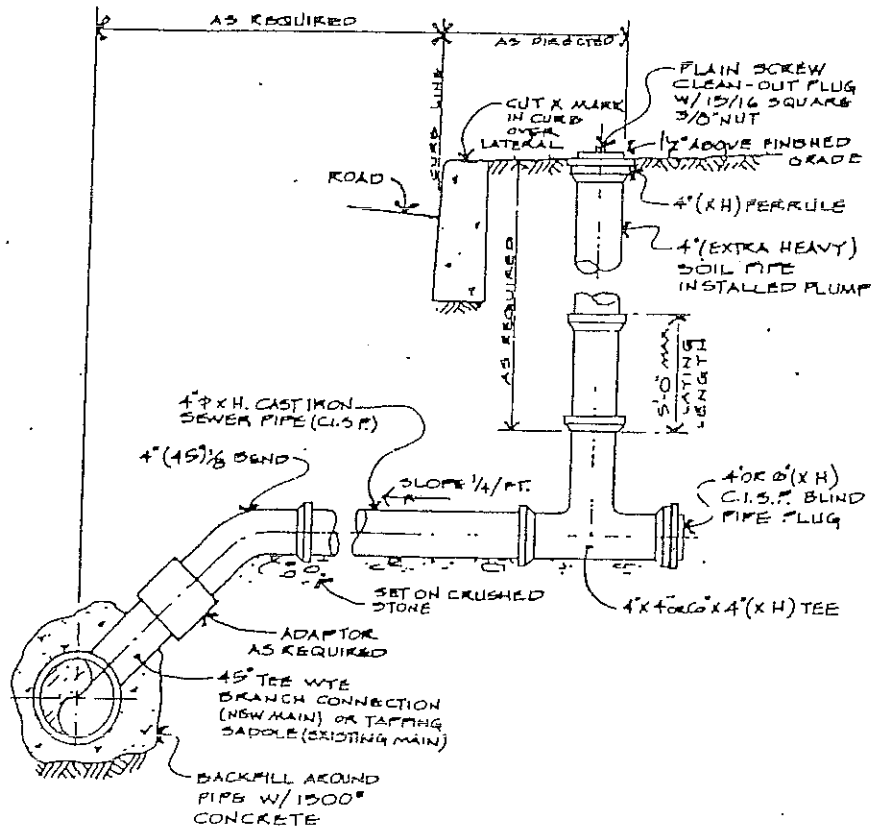 AS REQUIRED
AS DIRECTED
CURB LINE
CUT X MARK
IN CURB
OVER
LATERAL
PLAIN SCREW
CLEAN-OUT PLUG
W/ 15/16 SQUARE
3/8" NUT
1/2" ABOVE FINISHED
GRADE
ROAD
4" (XH) FERRULE
4" (EXTRA HEAVY)
SOIL PIPE
INSTALLED PLUMP
AS REQUIRED
5'-0" MAX
LAYING
LENGTH
4"φ XH. CAST IRON
SEWER PIPE (C.I.S.P.)
4" (45°) 1/8 BEND
SLOPE 1/4/FT.
4" OR 6" (XH)
C.I.S.P. BLIND
PIPE PLUG
SET ON CRUSHED
STONE
4" X 4" OR 6" X 4" (XH) TEE
ADAPTOR
AS REQUIRED
45° TEE WYE
BRANCH CONNECTION
(NEW MAIN) OR TAPPING
SADDLE (EXISTING MAIN)
BACKFILL AROUND
PIPE W/ 1500#
CONCRETE